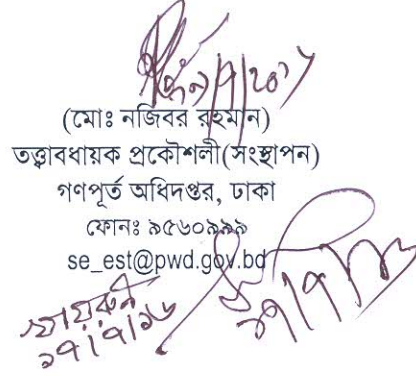 (মোঃ নজিবর রহমান)
তত্ত্বাবধায়ক প্রকৌশলী(সংস্থাপন)
গণপূর্ত অধিদপ্তর, ঢাকা
ফোনঃ ৯৫৬০৯৯৯
se_est@pwd.gov.bd
১৭/৭/১৬